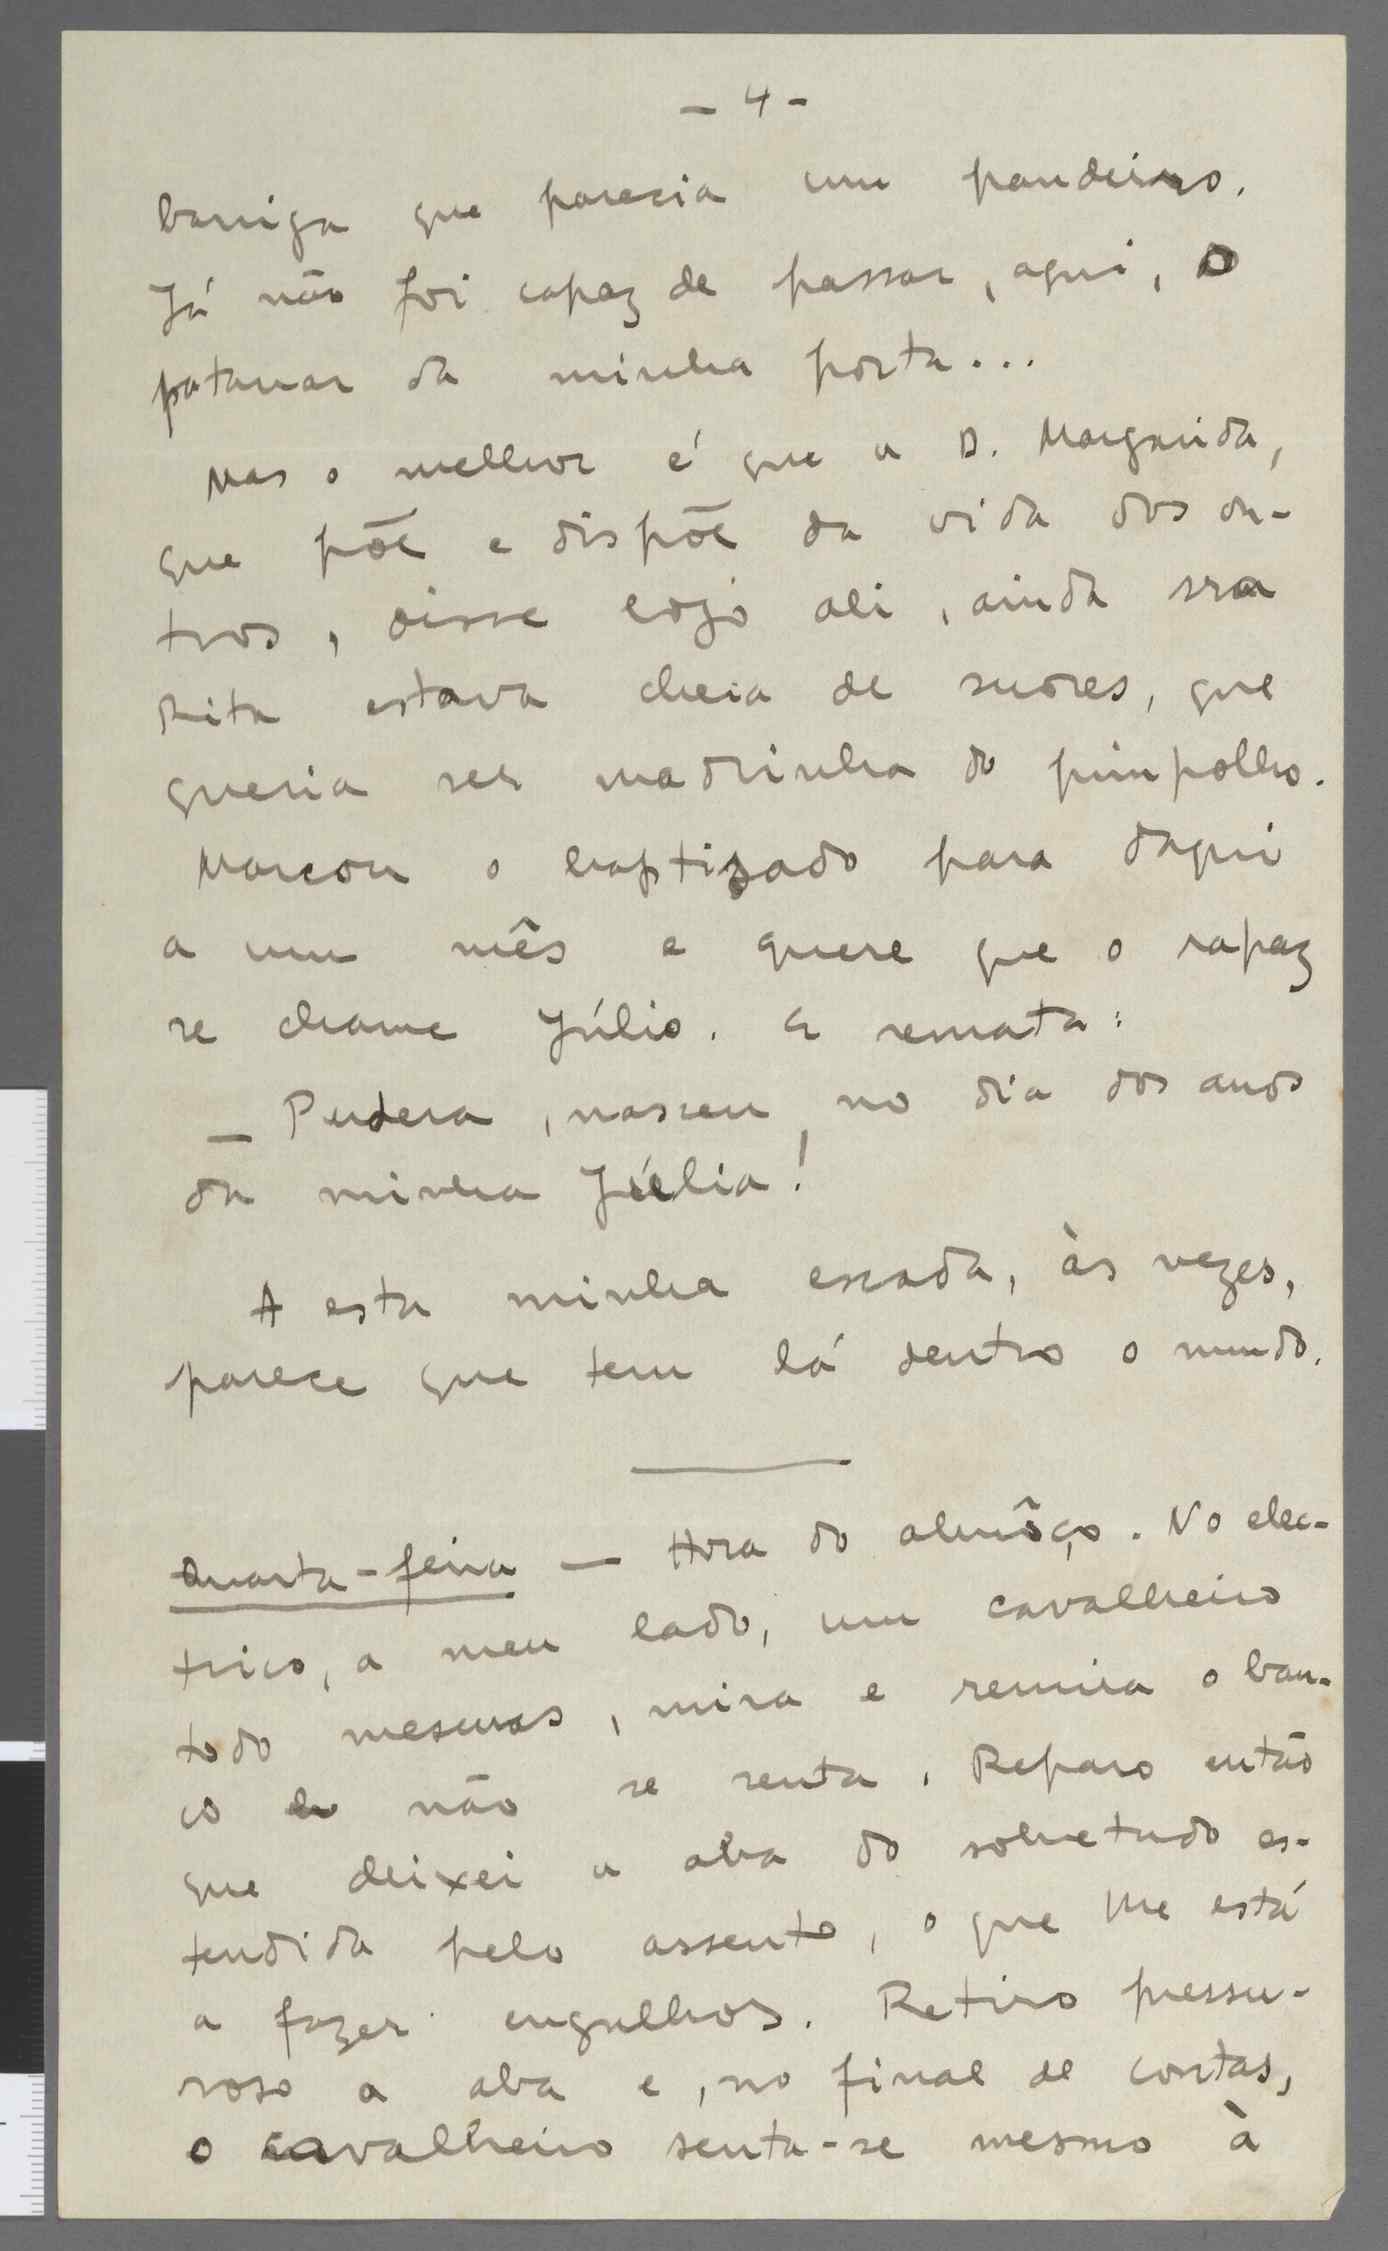 - 4 -
barriga que parecia um pandeiro.
Já não foi capaz de passar, aqui, o
patamar da minha porta...
Mas o melhor é que a D. Margarida,
que põe e dispõe da vida dos ou-
tros, disse logo ali, ainda sra
Rita estava cheia de suores, que
queria ser madrinha do pimpolho.
Marcou o baptizado para daqui
a um mês e quere que o rapaz
se chame Júlio. E remata:
— Pudera, nasceu no dia dos anos
da minha Júlia!
A esta minha escada, às vezes,
parece que tem lá dentro o mundo.
Quarta-feira — Hora do almôço. No elec-
trico, a meu lado, um cavalheiro
todo mesuras, mira e remira o ban-
co e não se senta. Reparo então
que deixei a aba do sobretudo es-
tendida pelo assento, o que lhe está
a fazer engulhos. Retiro pressu-
roso a aba e, no final de contas,
o cavalheiro senta-se mesmo à